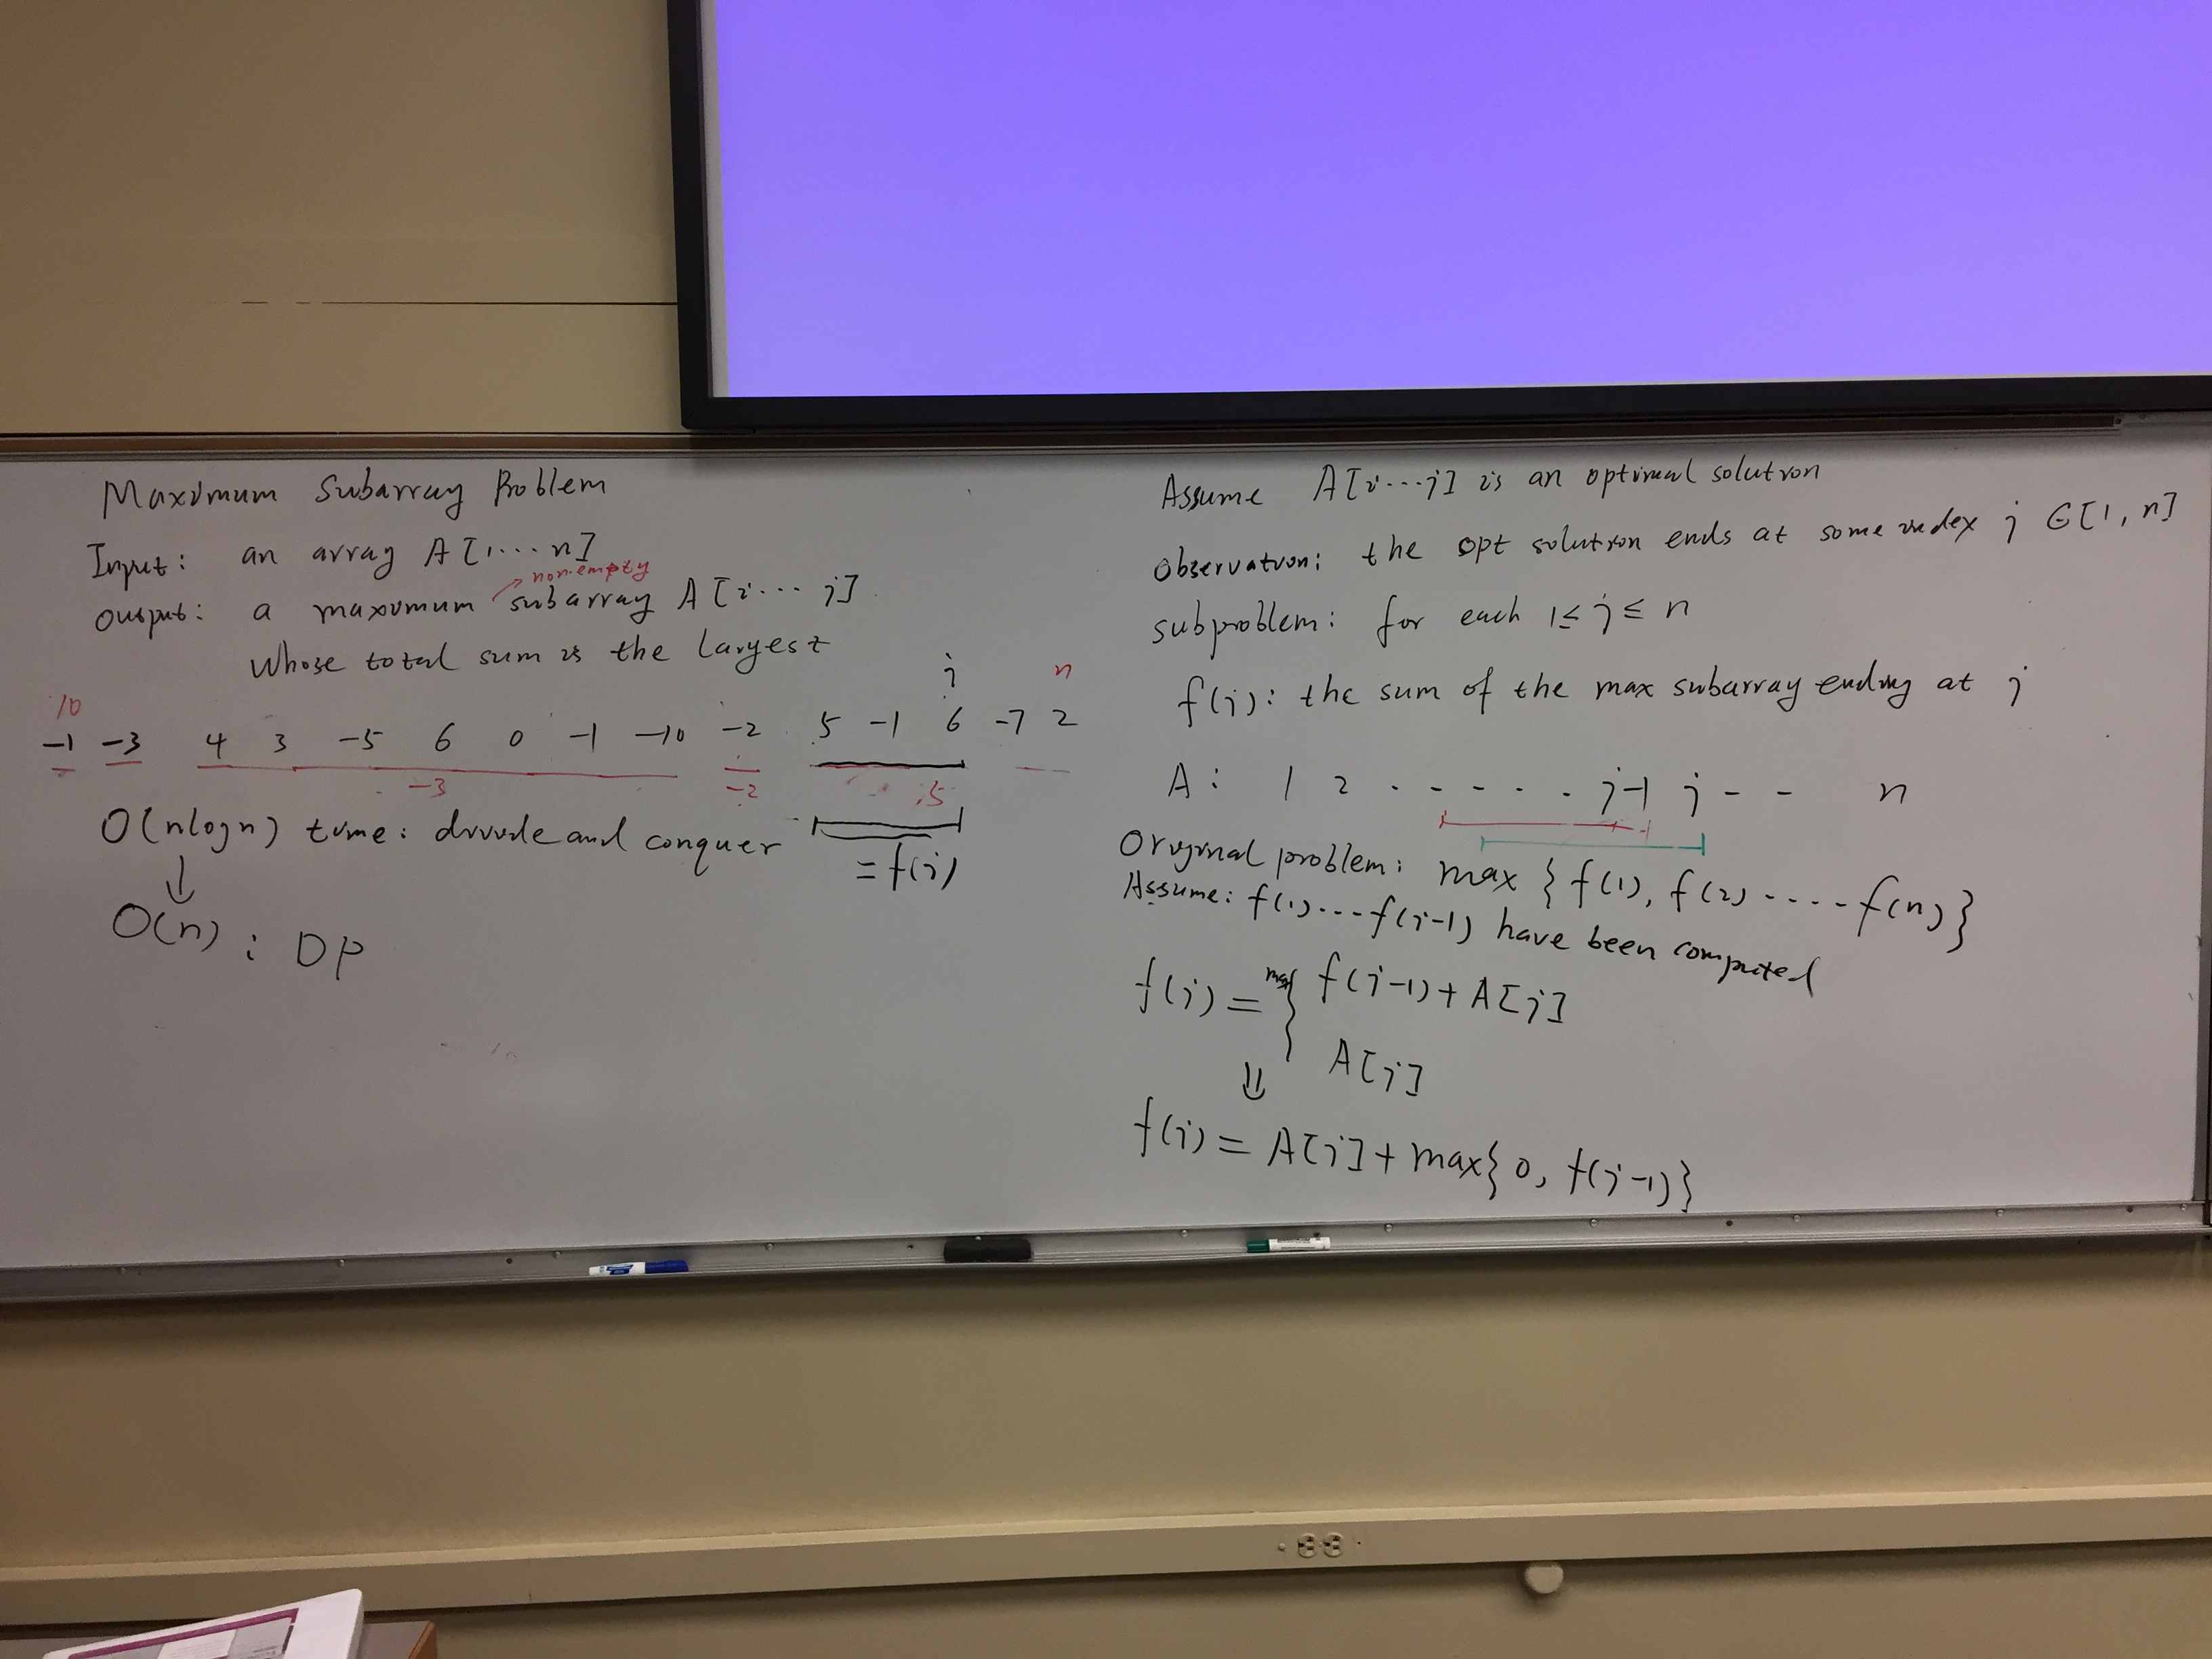 Maximum Subarray Problem
Input: an array A[1...n]
non-empty
Output: a maximum subarray A[i...j]
whose total sum is the largest
j n
10
-1 -3 4 3 -5 6 0 -1 -10 -2 5 -1 6 -7 2
-3 -2
O(nlogn) time: divide and conquer
= f(j)
↓
O(n): DP
Assume A[i...j] is an optimal solution
Observation: the opt solution ends at some index j ∈[1, n]
subproblem: for each 1≤ j ≤ n
f(j): the sum of the max subarray ending at j
A: 1 2 . - - . . . j-1 j - - n
Original problem: max {f(1), f(2) ---- f(n)}
Assume: f(1)...f(j-1) have been computed
f(j) = max{ f(j-1) + A[j]
A[j]
⇓
f(j) = A[j] + max{0, f(j-1)}